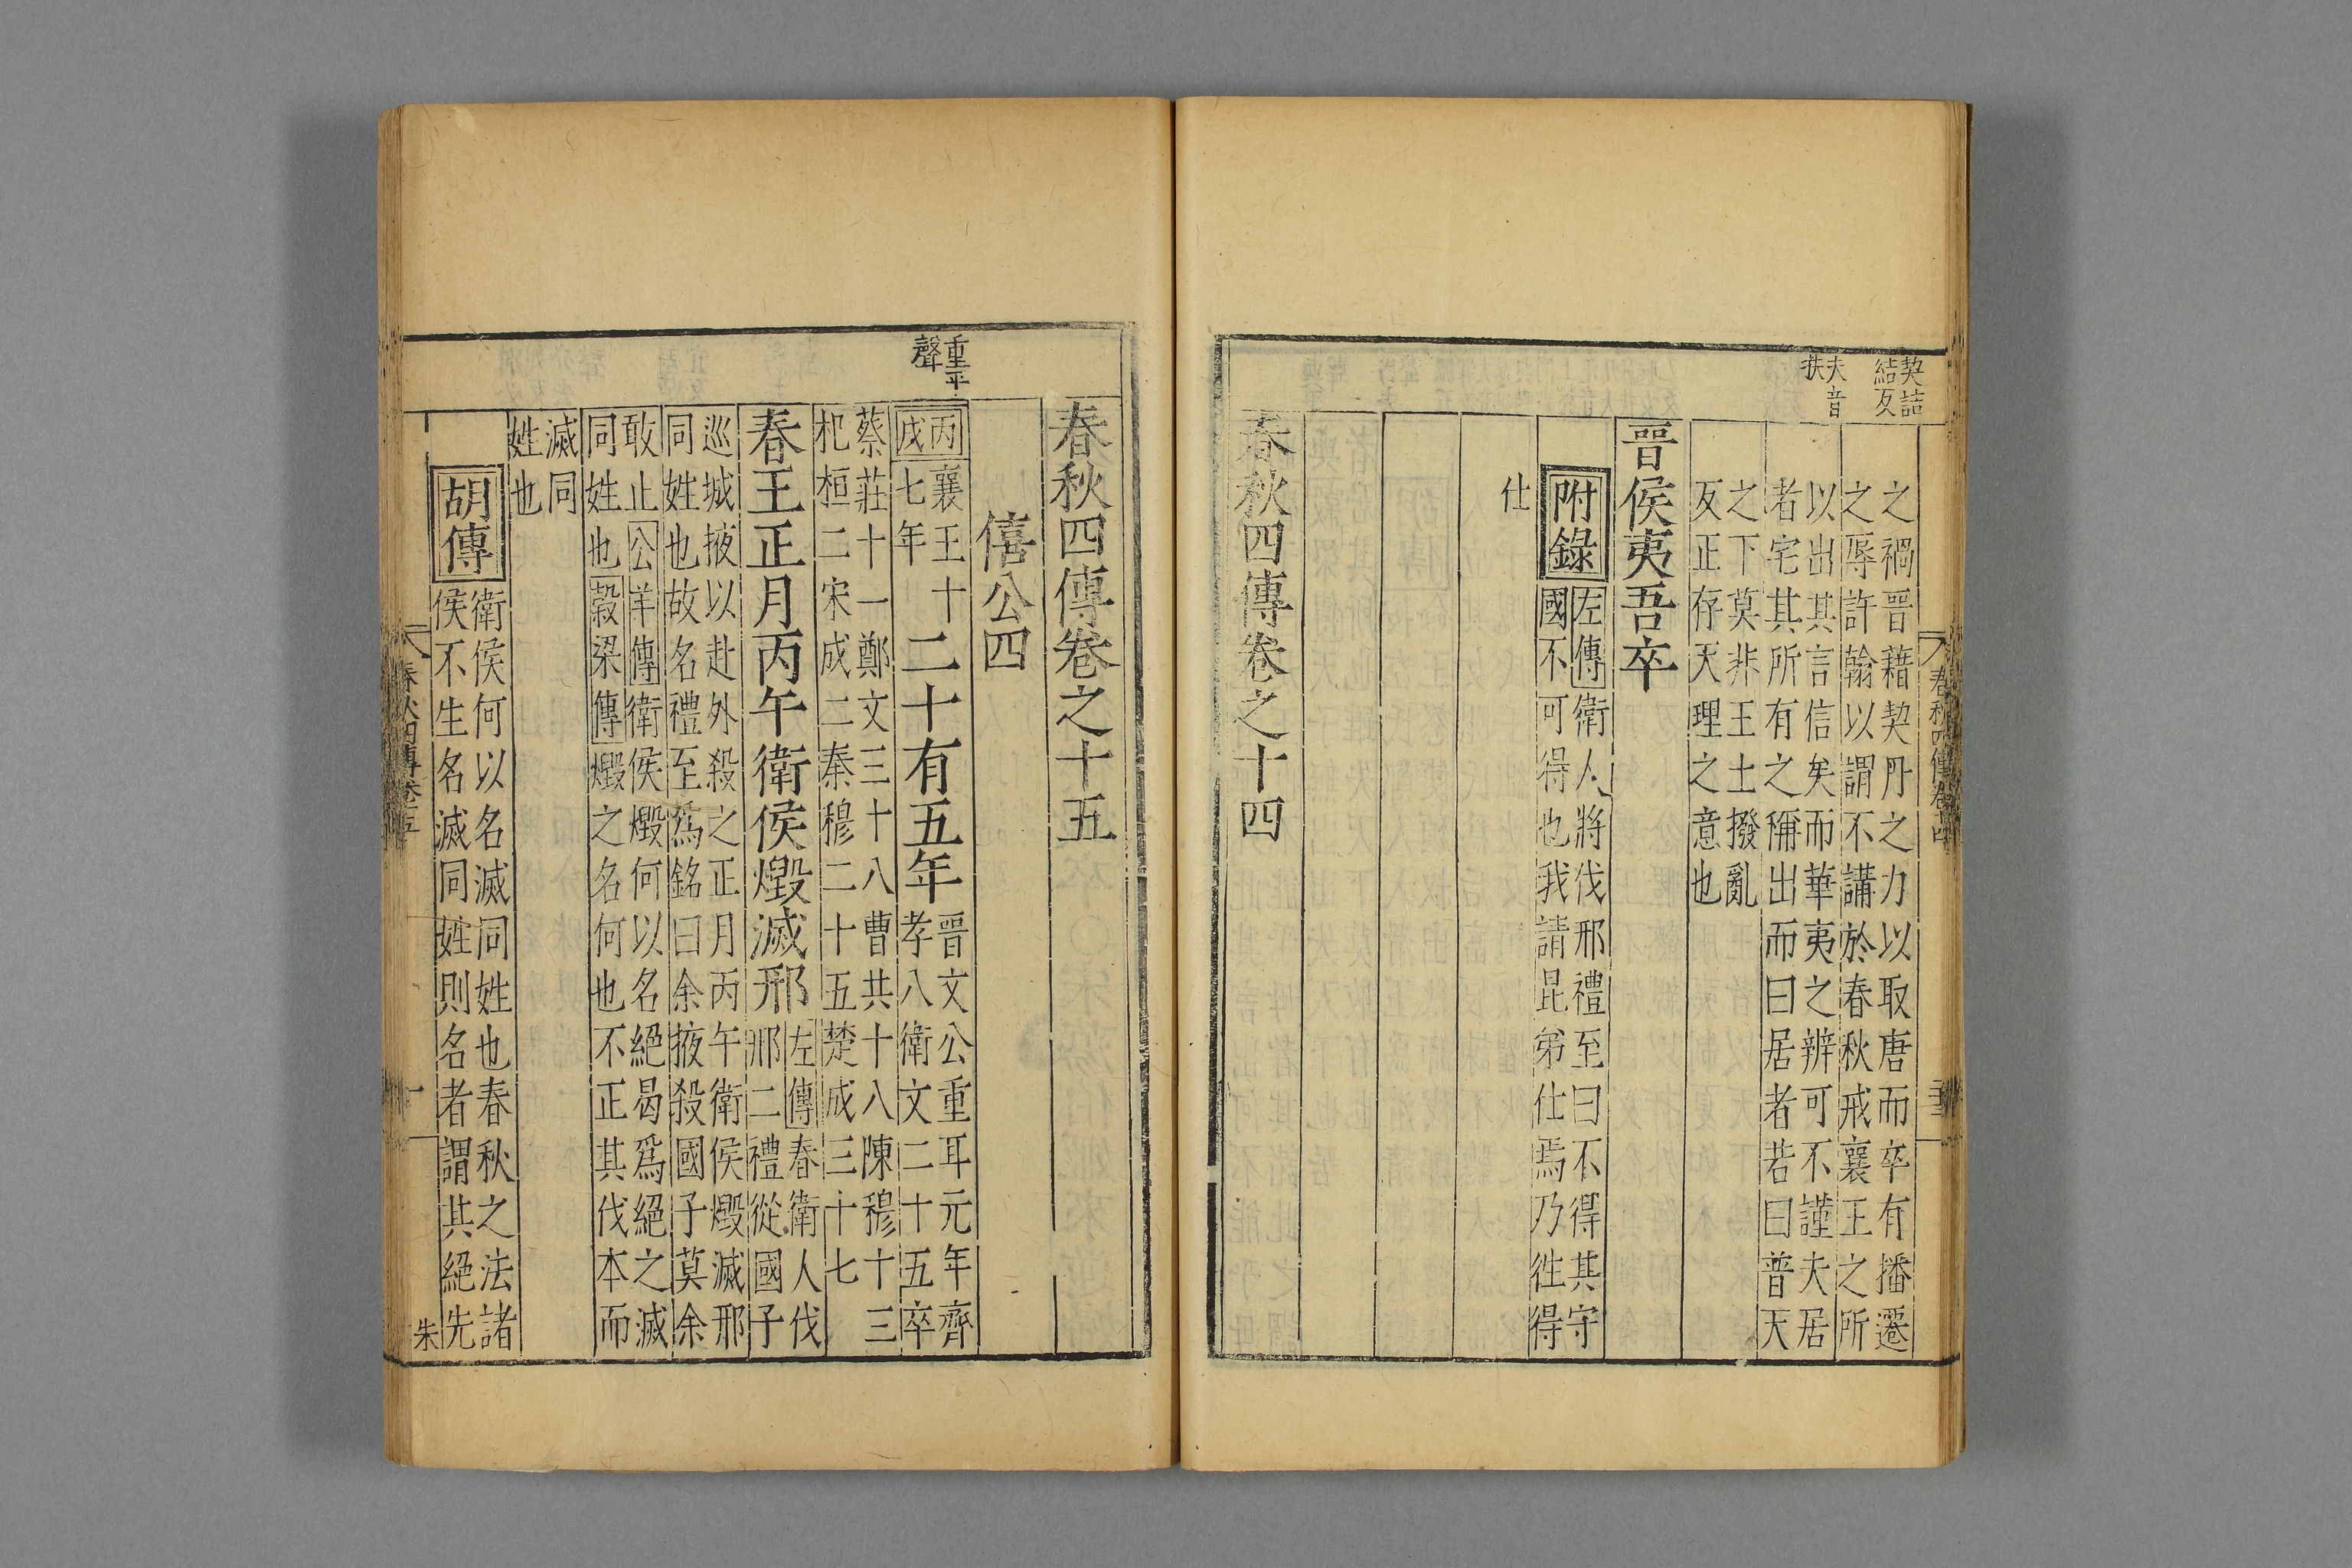 契詰
結反
夫音
扶
之禍晉藉契丹之力以取唐而卒有播遷
之辱許翰以謂不講於春秋戒襄王之所
以出其言信矣而華夷之辨可不謹夫居
者宅其所有之稱出而曰居者若曰普天
之下莫非王土撥亂
反正存天理之意也
晉侯夷吾卒
附錄
左傳衛人將伐邢禮至曰不得其守
國不可得也我請昆弟仕焉乃徃得
仕
春秋四傳卷之十四
春秋四傳卷之十五
僖公四
重平
聲
丙
戌
襄王十
七年
二十有五年
晉文公重耳元年齊
孝八衛文二十五卒
蔡莊十一鄭文三十八曹共十八陳穆十三
杞桓二宋成二秦穆二十五楚成三十七
春王正月丙午衛侯燬滅邢
左傳春衛人伐
邢二禮從國子
巡城掖以赴外殺之正月丙午衛侯燬滅邢
同姓也故名禮至爲銘曰余掖殺國子莫余
敢止公羊傳衛侯燬何以名絕曷爲絕之滅
同姓也穀梁傳燬之名何也不正其伐本而
滅同
姓也
胡傳
衛侯何以名滅同姓也春秋之法諸
侯不生名滅同姓則名者謂其絕先
朱